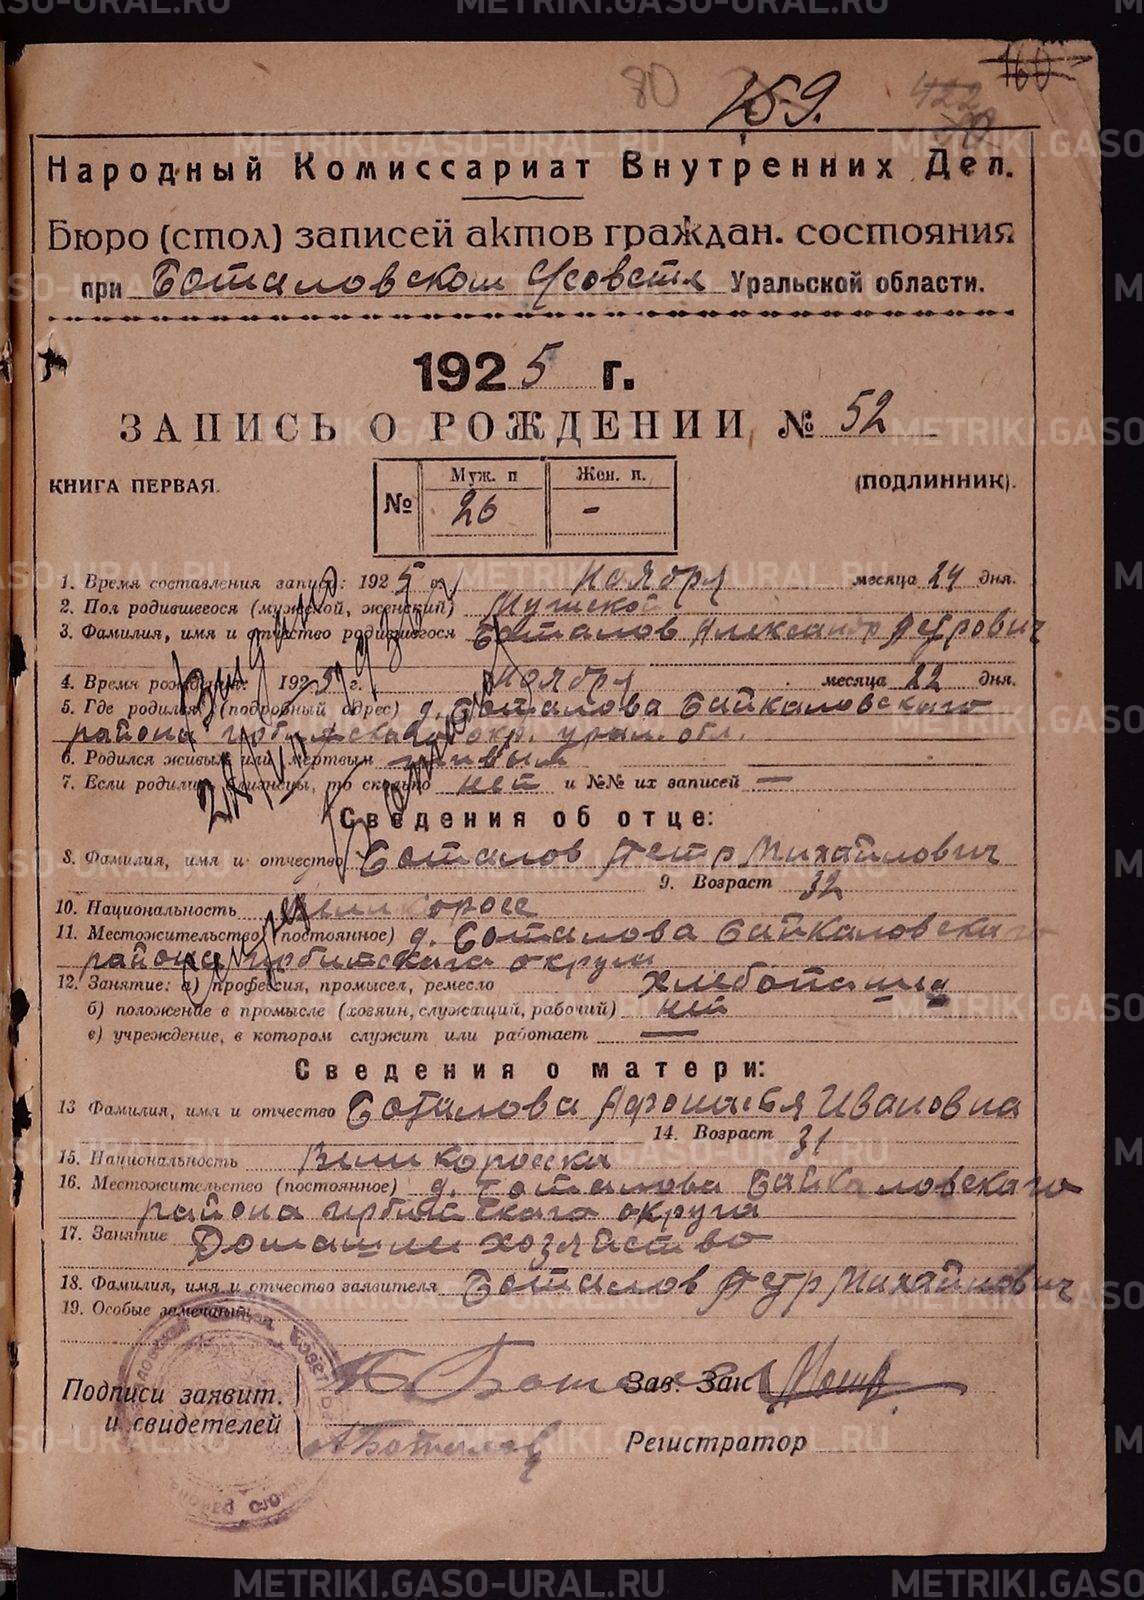 80
159.
160
422
Народный Комиссариат Внутренних Дел.
Бюро (стол) записей актов граждан. состояния
при Боталовском с/совете Уральской области.
1925 г.
ЗАПИСЬ О РОЖДЕНИИ № 52
КНИГА ПЕРВАЯ.
(ПОДЛИННИК).
№ Муж. п Жен. п.
26 -
1. Время составления записи: 1925 г. Ноября месяца 24 дня.
2. Пол родившегося (мужской, женский) Мужской
3. Фамилия, имя и отчество родившегося Боталов Александр Петрович
4. Время рождения: 1925 г. Ноября месяца 22 дня.
5. Где родился (подробный адрес) д. Боталова Байкаловскаго
района Ирбитскава окр. урал. обл.
6. Родился живым или мертвым живым
7. Если родились близнецы, то сколько нет и №№ их записей —
Сведения об отце:
8. Фамилия, имя и отчество Боталов Петр Михайлович
9. Возраст 32
10. Национальность Великоросс
11. Местожительство (постоянное) д. Боталова Байкаловскаго
района Ирбитскага округа
12. Занятие: а) профессия, промысел, ремесло хлебопашец
б) положение в промысле (хозяин, служащий, рабочий) нет
в) учреждение, в котором служит или работает —
Сведения о матери:
13 Фамилия, имя и отчество Боталова Афонасья Ивановна
14. Возраст 31
15. Национальность Великороска
16. Местожительство (постоянное) д. Боталова Байкаловскаго
района Ирбитскага округа
17. Занятие Домашнее хозяйство
18. Фамилия, имя и отчество заявителя Боталов Петр Михайлович
19. Особые замечания:
Подписи заявит.
и свидетелей
П Ботал
АБоталов
Зав. Заг
Регистратор
METRIKI.GASO-URAL.RU